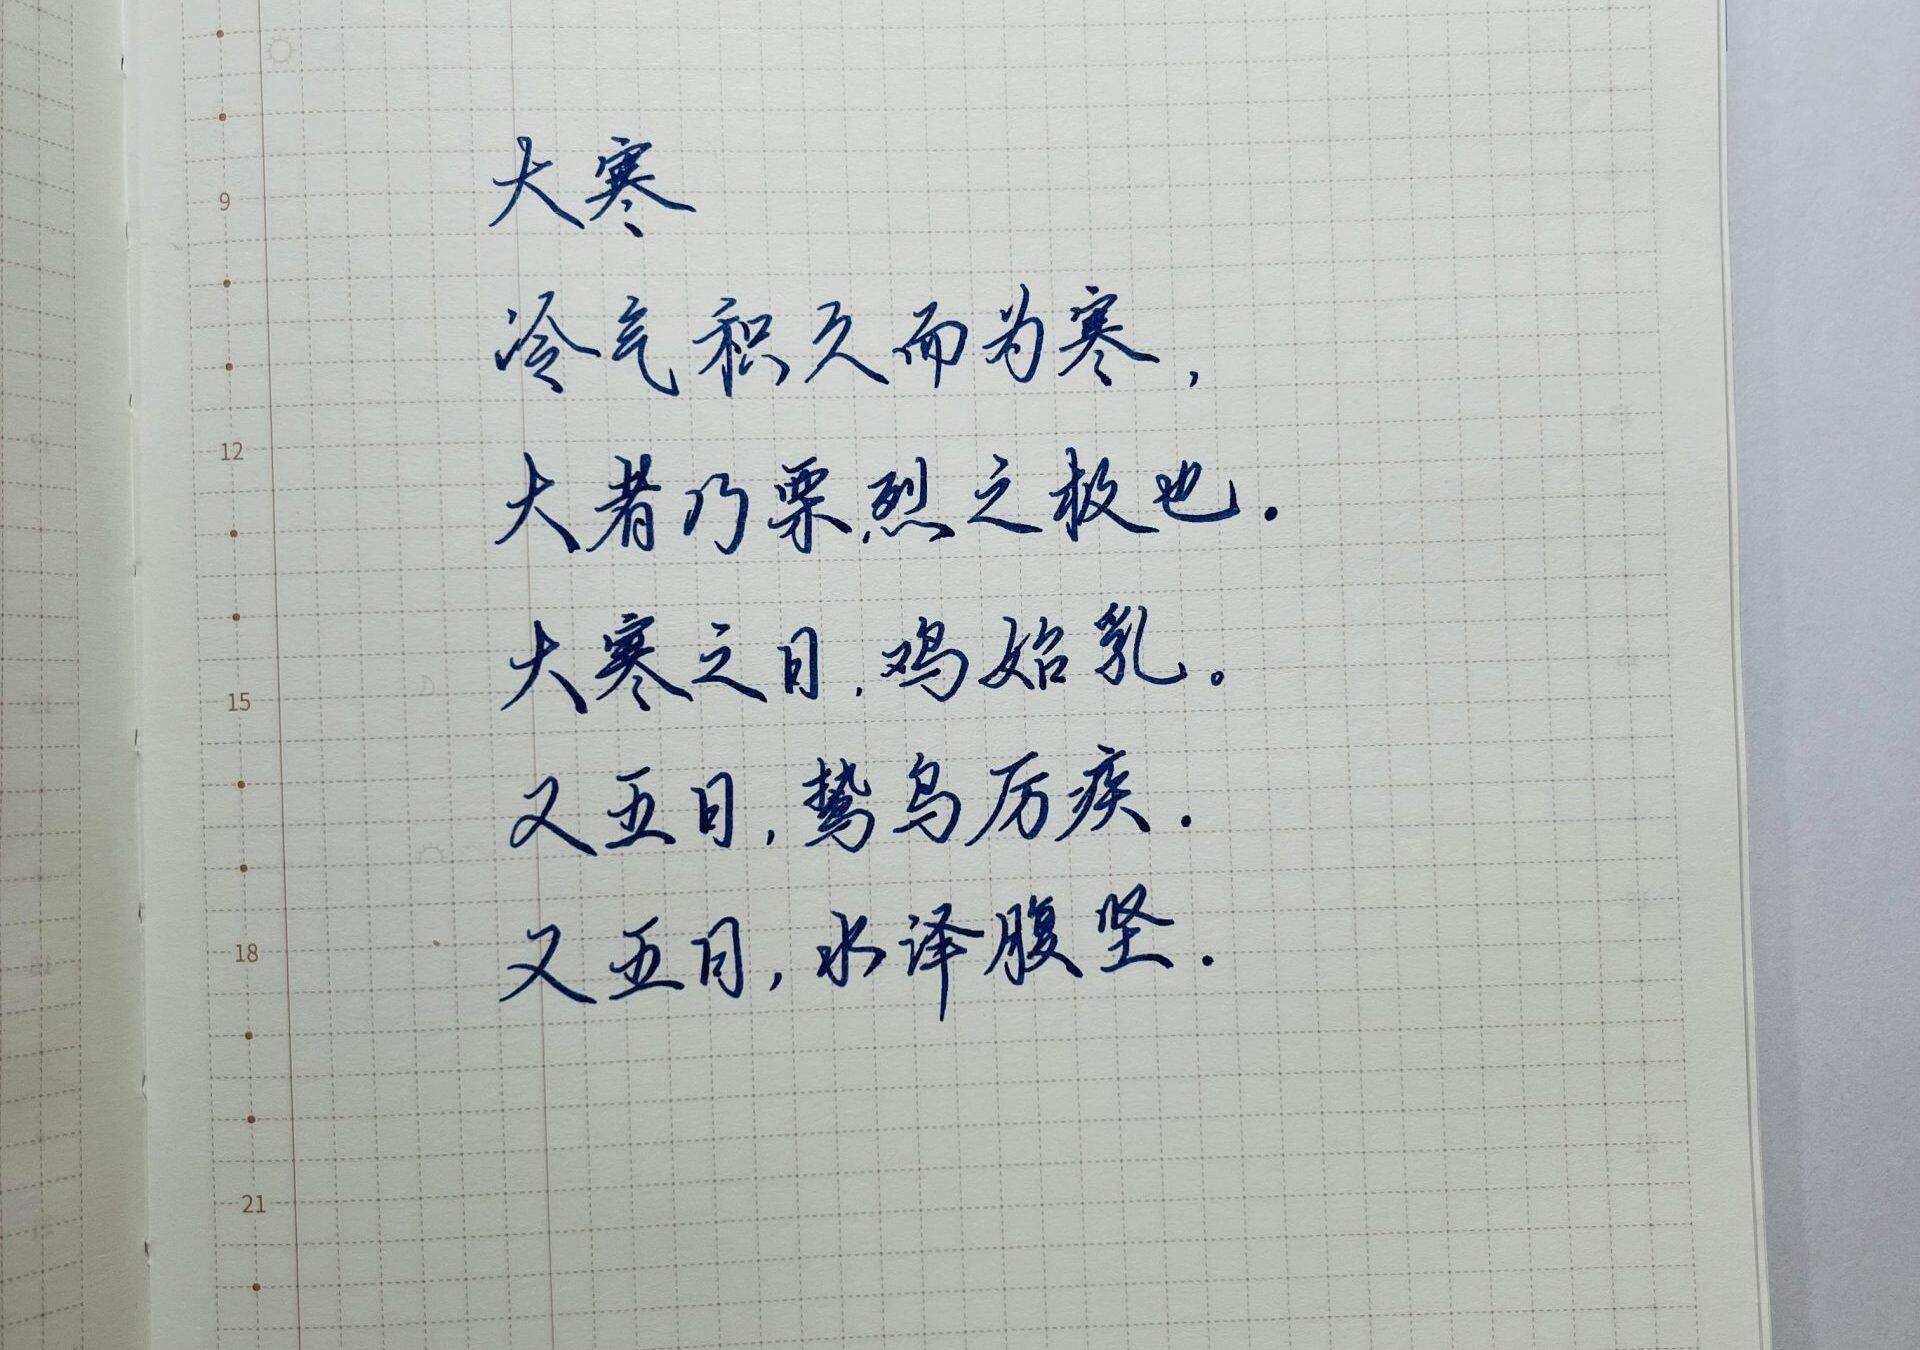 大寒
9
冷气积久而为寒，
12
大者乃栗烈之极也.
大寒之日，鸡始乳。
15
又五日，鸷鸟厉疾.
又五日，水泽腹坚.
18
21